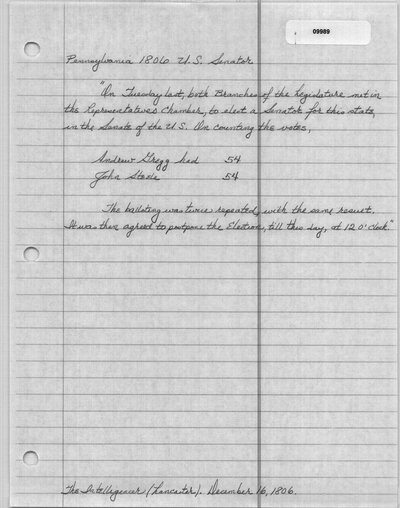 09989
Pennsylvania 1806 U.S. Senator
"On Tuesday last, both Branches of the Legislature met in
the Representatives Chamber, to elect a Senator for this state,
in the Senate of the U.S. On counting the votes,
Andrew Gregg had 54
John Steele 54
The balloting was twice repeated, with the same result.
It was then agreed to postpone the Election, till this day, at 12 O'Clock."
The Intelligencer (Lancaster). December 16, 1806.